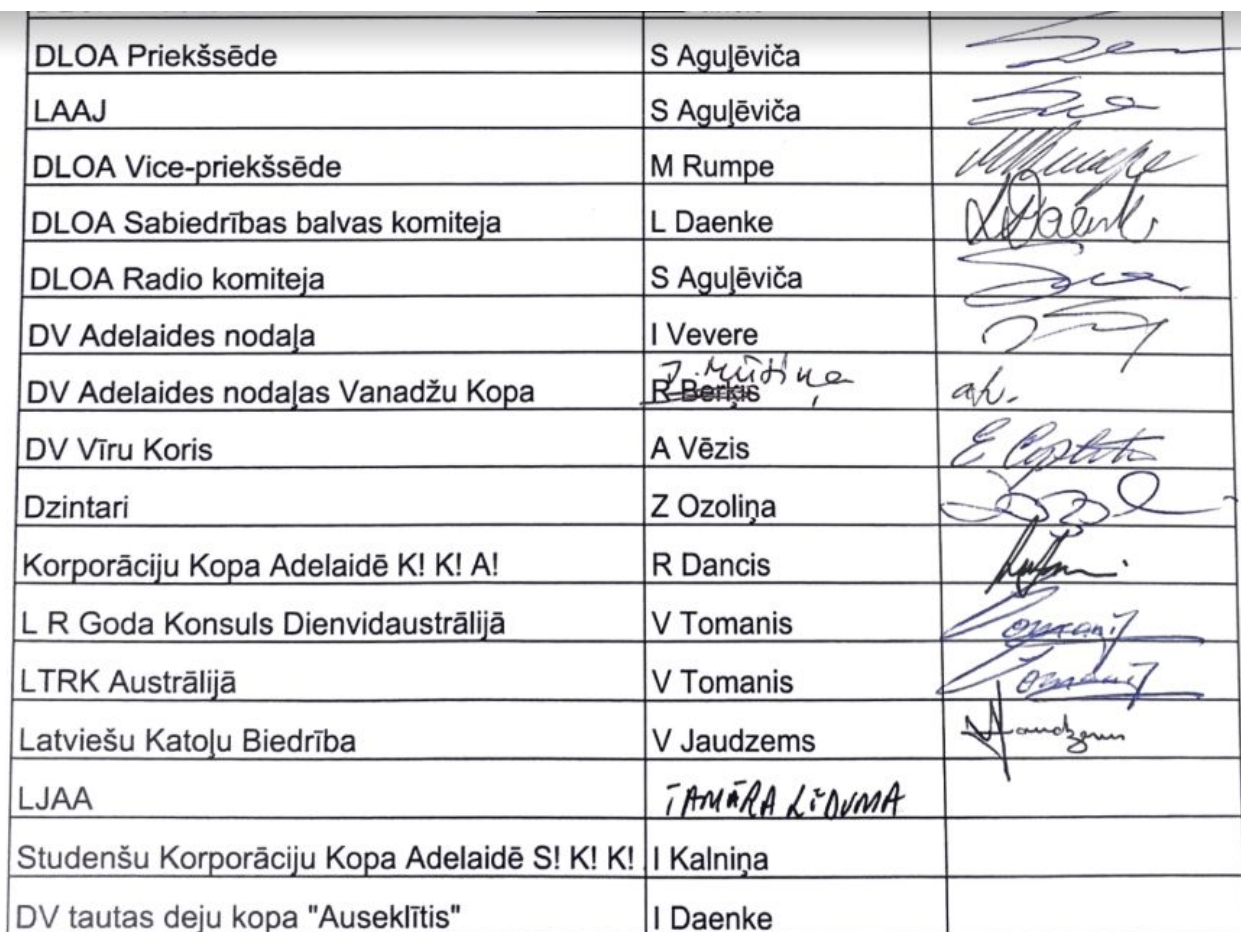 DLOA Priekšsēde S Aguļēviča
LAAJ S Aguļēviča
DLOA Vice-priekšsēde M Rumpe MRumpe
DLOA Sabiedrības balvas komiteja L Daenke
DLOA Radio komiteja S Aguļēviča
DV Adelaides nodaļa I Vevere
DV Adelaides nodaļas Vanadžu Kopa R Berķis
DV Vīru Koris A Vēzis
Dzintari Z Ozoliņa
Korporāciju Kopa Adelaidē K! K! A! R Dancis
L R Goda Konsuls Dienvidaustrālijā V Tomanis
LTRK Austrālijā V Tomanis
Latviešu Katoļu Biedrība V Jaudzems
LJAA TAMĀRA LĪDUMA
Studenšu Korporāciju Kopa Adelaidē S! K! K! I Kalniņa
DV tautas deju kopa "Auseklītis" I Daenke